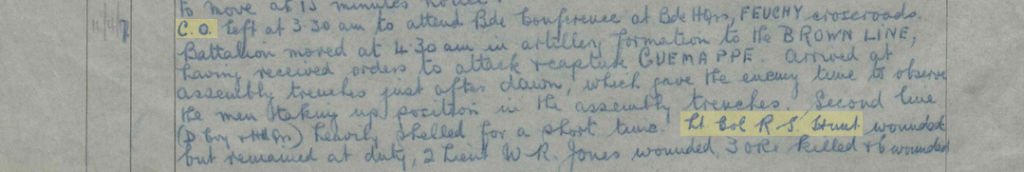 to move at 15 minutes notice.
11/4/17 C.O. left at 3.30 am to attend Bde Conference at Bde HQrs, FEUCHY crossroads.
Battalion moved at 4.30 am in artillery formation to the BROWN LINE,
having received orders to attack & capture GUEMAPPE. Arrived at
assembly trenches just after dawn, which gave the enemy time to observe
the men taking up position in the assembly trenches. Second line
(D Coy & HdQrs) heavily shelled for a short time. Lt Col R S Hunt wounded
but remained at duty, 2 Lieut W.R. Jones wounded, 3 ORs killed & 6 wounded